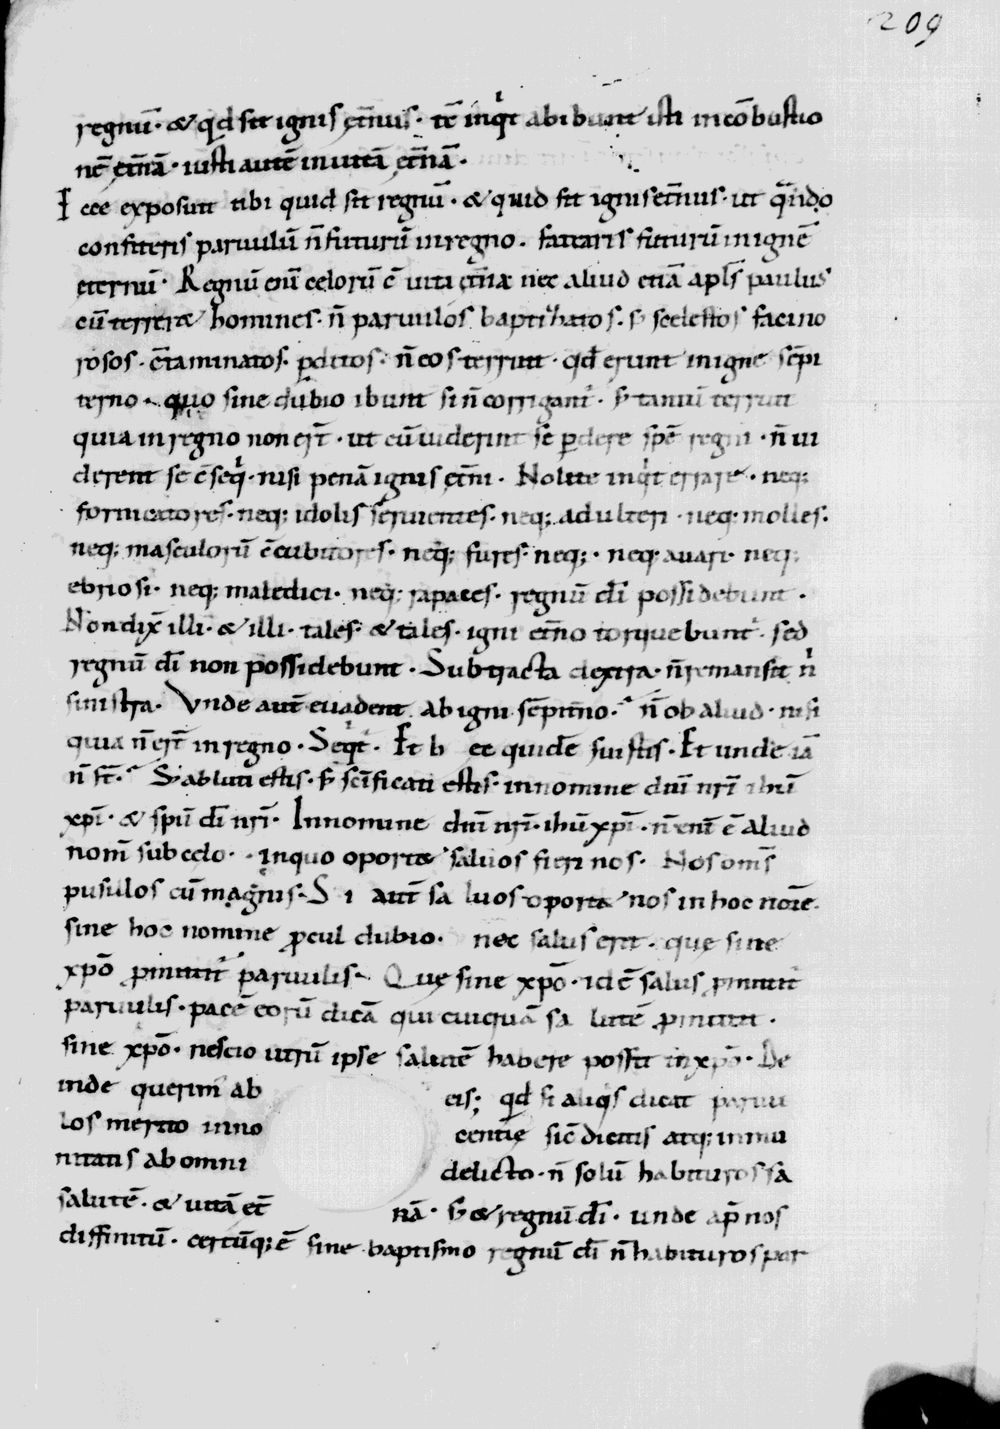 209
regnū· & qd sit ignis et̄nus· tc̄ inqt abibunt isti in cōbustio
nē et̄nā· iusti autē in uitā et̄nā·
Ecce exposuit tibi quid sit regnū· & quid sit ignis et̄nus· ut qn̄do
confiteris paruulū n̄ futurū in regno· fatearis futurū in ignē
eternū· Regnū enī celorū ē uita et̄na nec aliud etiā apl̄s paulus
cū terrer& homines· n̄ paruulos baptizatos· s; scelestos facino
rosos· c̄taminatos· p̄ditos· n̄ eos terruit· qd erunt in igne sēpi
terno· quo sine dubio ibunt si n̄ corrigant᷒· s; tantū terruit
quia in regno non ert̄· ut cū uiderint se p̄dere spē regni· n̄ ui
derent se c̄seq· nisi penā ignis et̄ni· Nolite inqt errare· neq;
fornicatores· neq; idolis seruientes· neq; adulteri· neq; molles·
neq; masculorū c̄cubitores· neq; fures· neq;· neq; auari· neq;
ebriosi· neq; maledici· neq; rapaces· regnū dī possidebunt·
Non dix̄ illi· & illi· tales· & tales· igni et̄no torquebunt᷒· sed
regnū dī non possidebunt· Subtracta dextra· n̄ remansit n̄
sinistra· Vnde aut̄ euadent ab igni sēpit̄no· n̄ ob aliud· nisi
quia n̄ ert̄ in regno· Seqt᷒· Et h ec quidē fuistis· Et unde iā
n̄ st̄· S; abluti estis· s; sc̄ificati estis· in nomine dn̄i nr̄i ihū
xp̄i· & spū dī nr̄i· In nomine dn̄i nr̄i· ihū xp̄i· n̄ enī ē aliud
nom̄ sub celo· in quo oport& saluos fieri nos· Nos om̄s
pusillos cū magnis· S i aut̄ sa luos oport& nos in hoc noīe·
sine hoc nomine p̄cul dubio· nec salus erit· que sine
xp̄o p̄mittit᷒ paruulis· Que sine xp̄o· id ē salus p̄mittit᷒
paruulis· pacē eorū dicā qui cuiquā sa lutē p̄mittit·
sine xp̄o· nescio utrū ipse salutē habere possit in xp̄o· De
inde querim᷒ ab eis; qd si aliqs dicat paruu
los merito inno centie sic̄ dictis atq; inmu
nitatis ab omni delicto· n̄ solū habituros sa
lutē· & uitā et̄ nā· s; & regnū dī· unde ap̄ nos
diffinitū· certūq; ē sine baptismo regnū dī n̄ habituros par